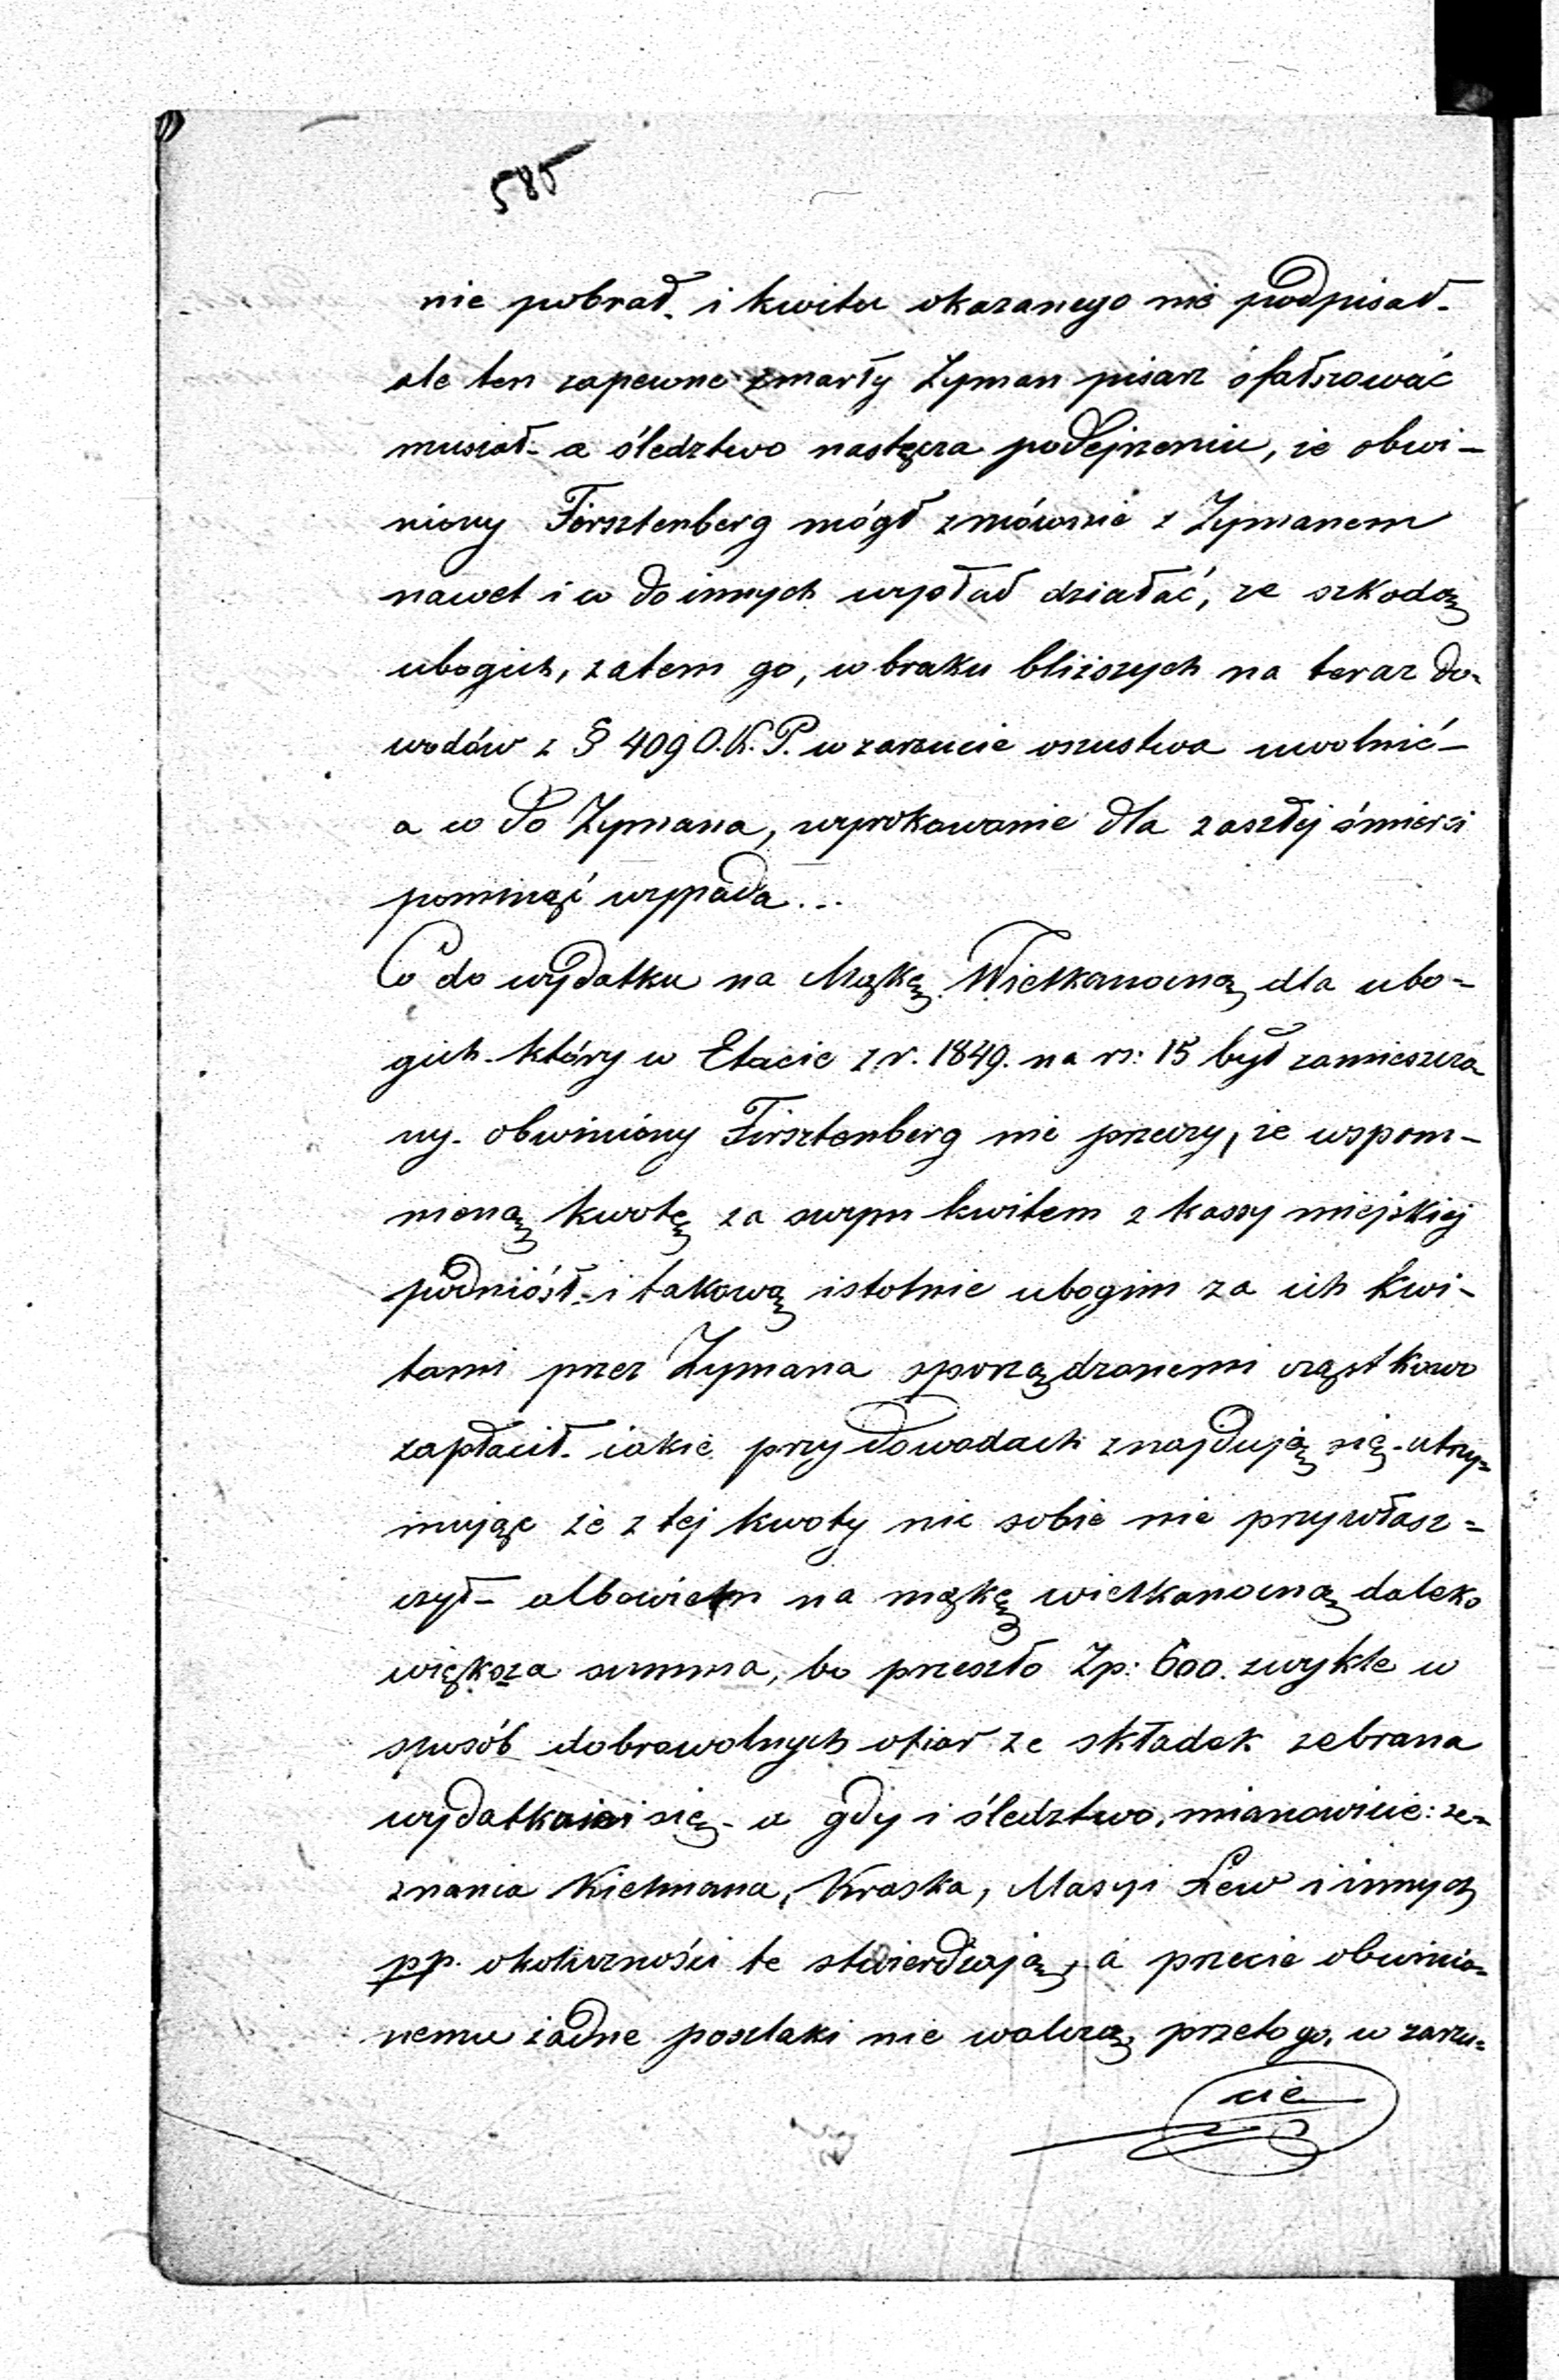 585
nie pobrał. i kwitu okazanego nie podpisał.
ale ten zapewne zmarły Zyman pisarz sfałszować
musiał - a śledztwo nastręcza podejrzenie, że obwi-
niony Firsztenberg mógł zmównie z Zymanem
nawet i w do innych wypłat działać, ze szkodą
ubogich, zatem go, w braku bliższych na teraz do-
wodów z § 409 O.K.P. w zarzucie oszustwa uwolnić -
a w do Zymana, wyrokowanie dla zaszłej śmierci
pominąć wypada...
Co do wydatku na Mąkę Wielkanocną dla ubo=
gich - który w Etacie z r. 1849. na rs: 15 był zamieszcza
ny - obwiniony Firsztenberg nie przeczy, że wspom-
nioną kwotę za swym kwitem z kassy miejskiej
podniósł - i takową istotnie ubogim za ich kwi-
tami przez Zymana sporządzonemi cząstkowo
zapłacił - jakie przy dowodach znajdują się - utrzy=
mując że z tej kwoty nic sobie nie przywłasz=
czył - albowiem na mąkę wielkanocną daleko
większa summa, bo przeszło Zp: 600. zwykle w
sposób dobrowolnych ofiar ze składek zebrana
wydatkuie się - a gdy i śledztwo, mianowicie: ze=
znania Kielmana, Kraska, Masyi Lew i innych
pp. okoliczności te stwierdzają, a przecie obwinio=
nemu żadne poszlaki nie walczą, przeto go, w zarzu=
cie